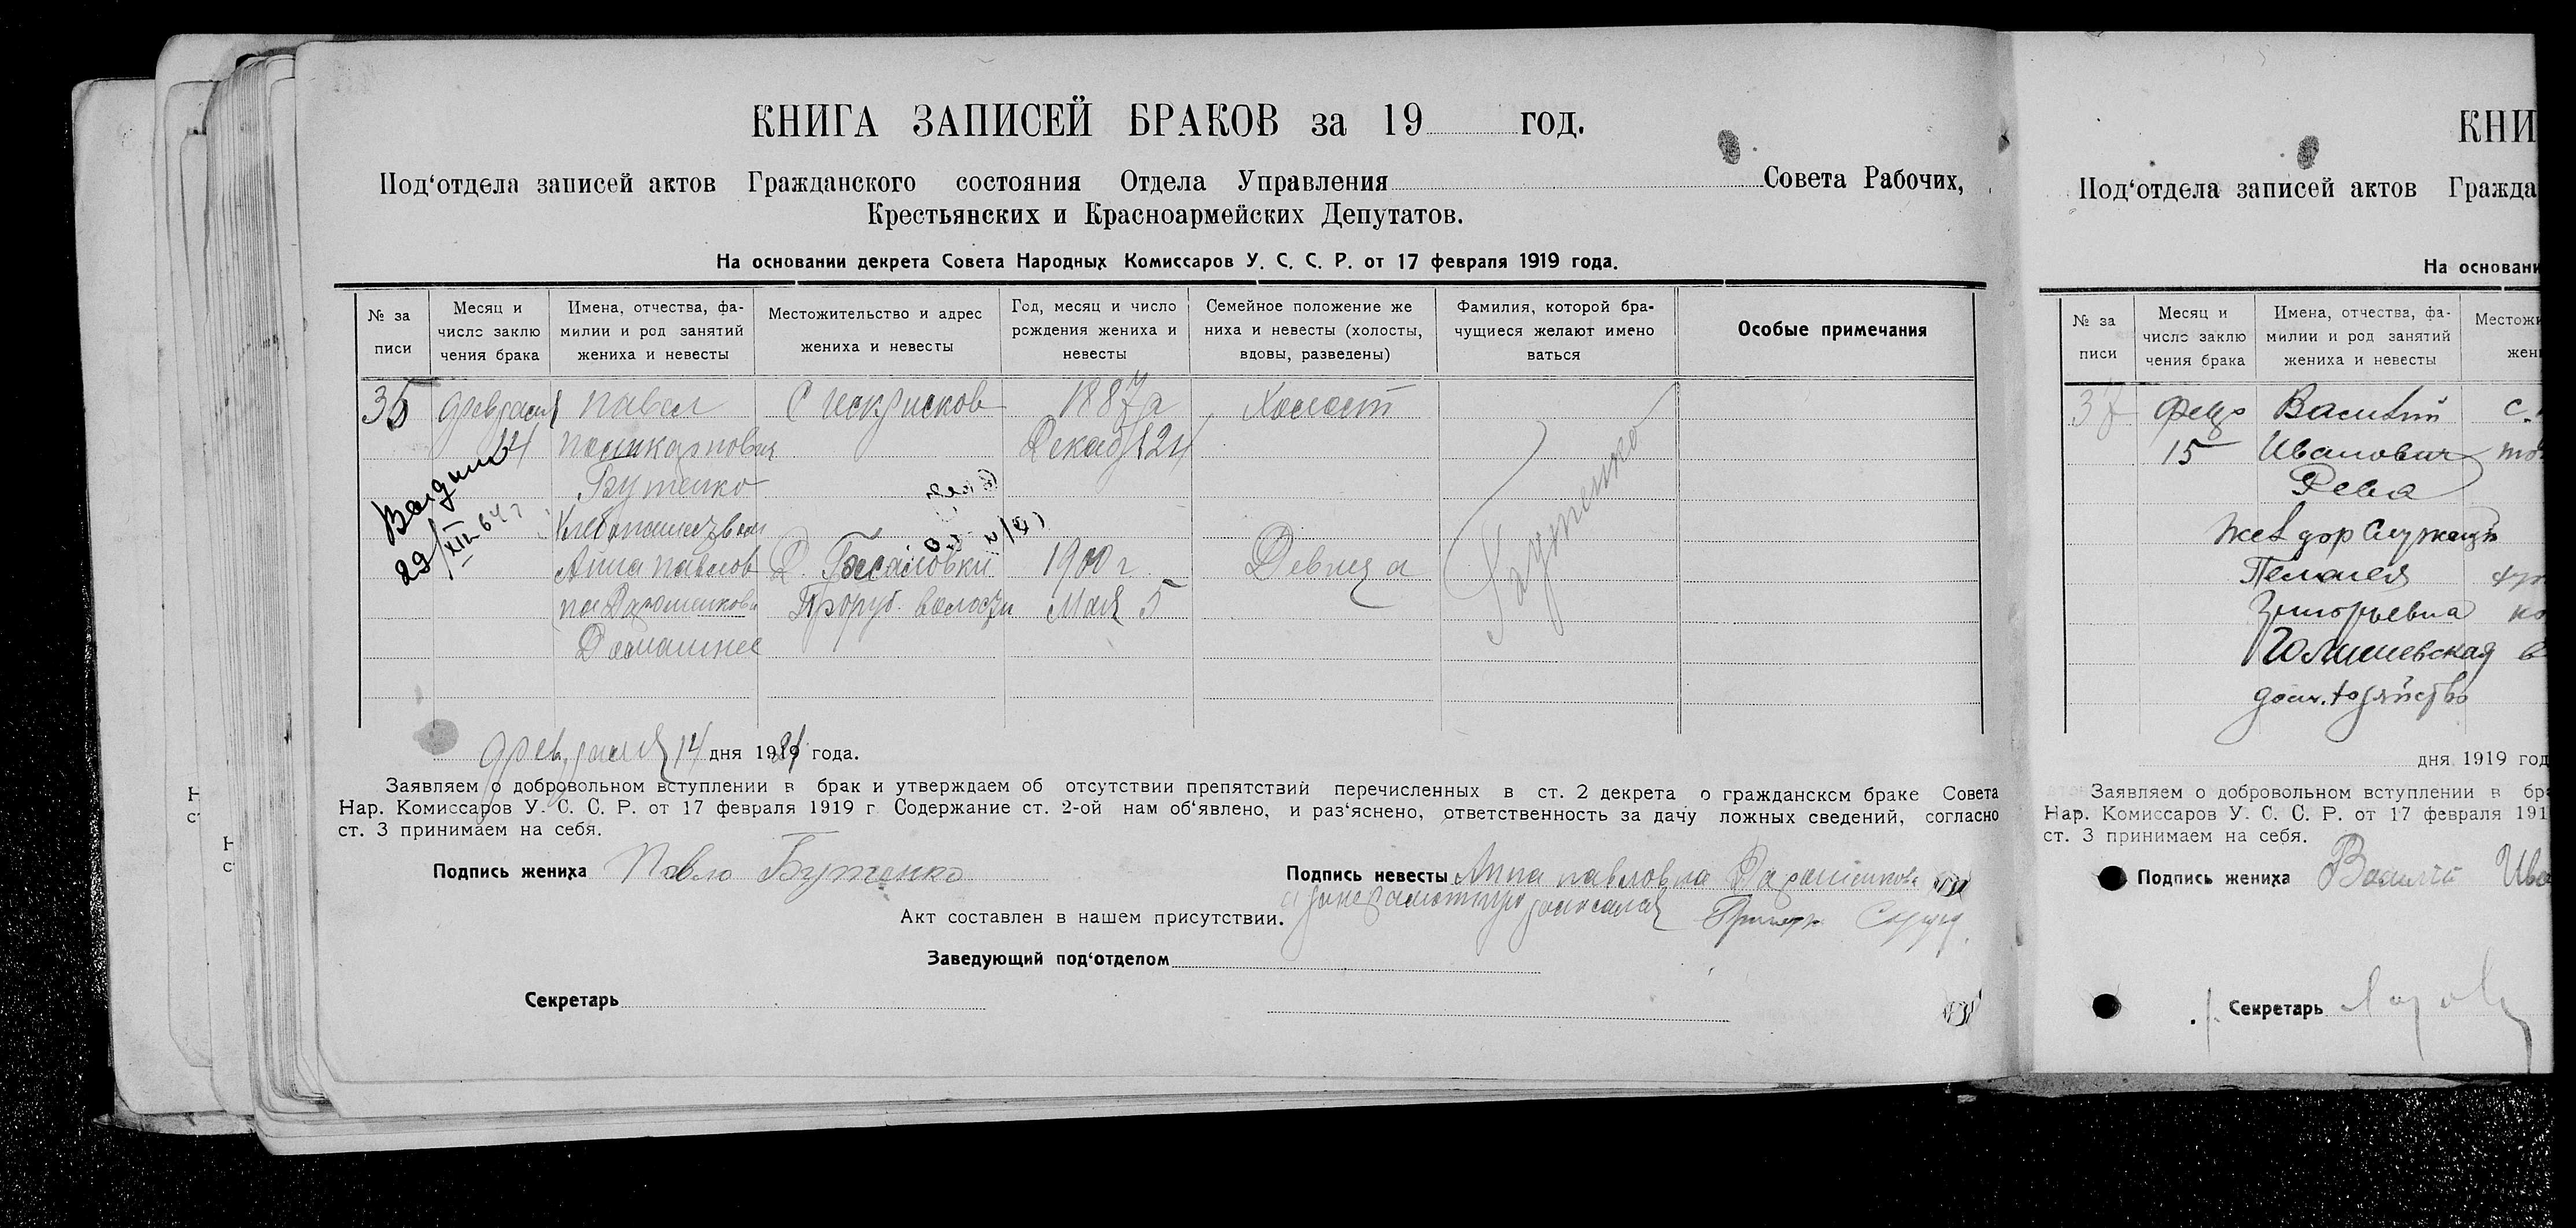 КНИГА ЗАПИСЕЙ БРАКОВ за 19 год.
Под‘отдела записей актов Гражданского состояния Отдела Управления Совета Рабочих,
Крестьянских и Красноармейских Депутатов.
На основании декрета Совета Народных Комиссаров У. С. С. Р. от 17 февраля 1919 года.
№ за писи
Месяц и число заклю чения брака
Имена, отчества, фа- милии и род занятий жениха и невесты
Местожительство и адрес жениха и невесты
Год, месяц и число рождения жениха и невесты
Семейное положение же ниха и невесты (холосты, вдовы, разведены)
Фамилия, которой бра- чущиеся желают имено ваться
Особые примечания
февраля Павел С 1887 Холост
14 поликарпович Декаб 24
Бутенко
29/XII
Анна павлов Д. 1900 г Девица
на волости Мая 5
Домашнее
февраля 14 дня 19 года.
Заявляем о добровольном вступлении в брак и утверждаем об отсутствии препятствий перечисленных в ст. 2 декрета о гражданском браке Совета
Нар. Комиссаров У. С. С. Р. от 17 февраля 1919 г Содержание ст. 2-ой нам об‘явлено, и раз‘яснено, ответственность за дачу ложных сведений, согласно
ст. 3 принимаем на себя.
Подпись жениха Павло Бутенко
Подпись невесты Анна павловна
Акт составлен в нашем присутствии.
Заведующий под‘отделом
Секретарь
КНИ
Под‘отдела записей актов Гражда
На основани
№ за писи
Месяц и число заклю чения брака
Имена, отчества, фа- милии и род занятий жениха и невесты
Местожи жен
Василий с.
15 Иванович
Рева
Пелагея
Григорьевна
дом. хозяйство
дня 1919 год
Заявляем о добровольном вступлении в бр
Нар. Комиссаров У. С. С. Р. от 17 февраля 191
ст. 3 принимаем на себя.
Подпись жениха Василий Ива
Секретарь